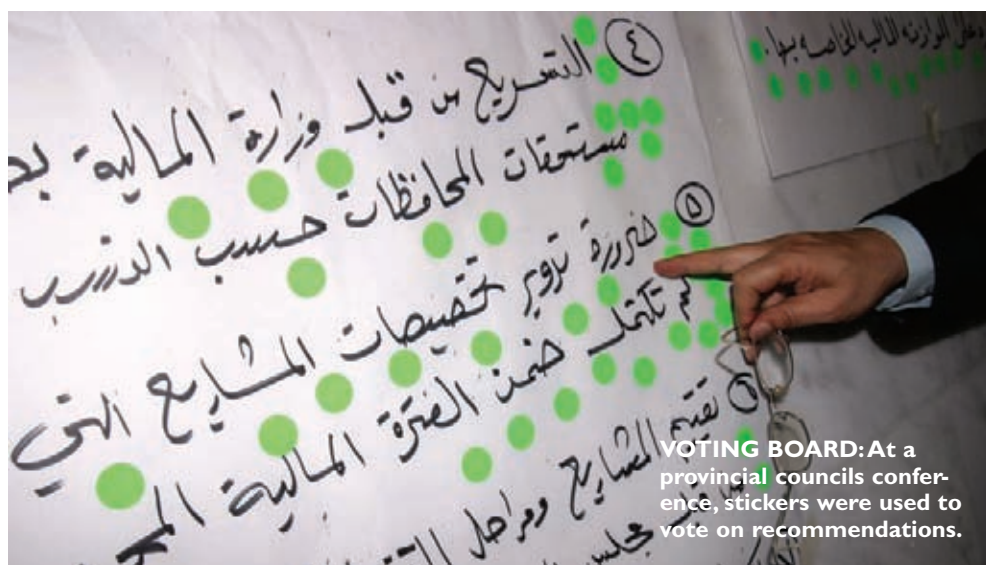 وعلى الموازنه الماليه الخاصه بها.
٤ التسريع من قبل وزارة المالية
مستحقات المحافظات حسب
٥ ضرورة تدوير تخصيصات المشاريع التي
لم تكتمل ضمن الفترة المالية
٦ تقييم المشاريع ومراحل
من قبل مجلس
VOTING BOARD: At a
provincial councils confer-
ence, stickers were used to
vote on recommendations.